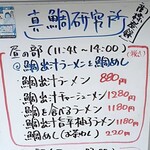 真鯛研究所
昼の部(11:45~14:00)
鯛出汁ラーメン&鯛めし
鯛出汁ラーメン 880円
鯛出汁チャーシューメン 1280円
鯛を食べるラーメン 1180円
鯛出汁旨辛柚子ラーメン 1180円
鯛めし(お茶め) 220円